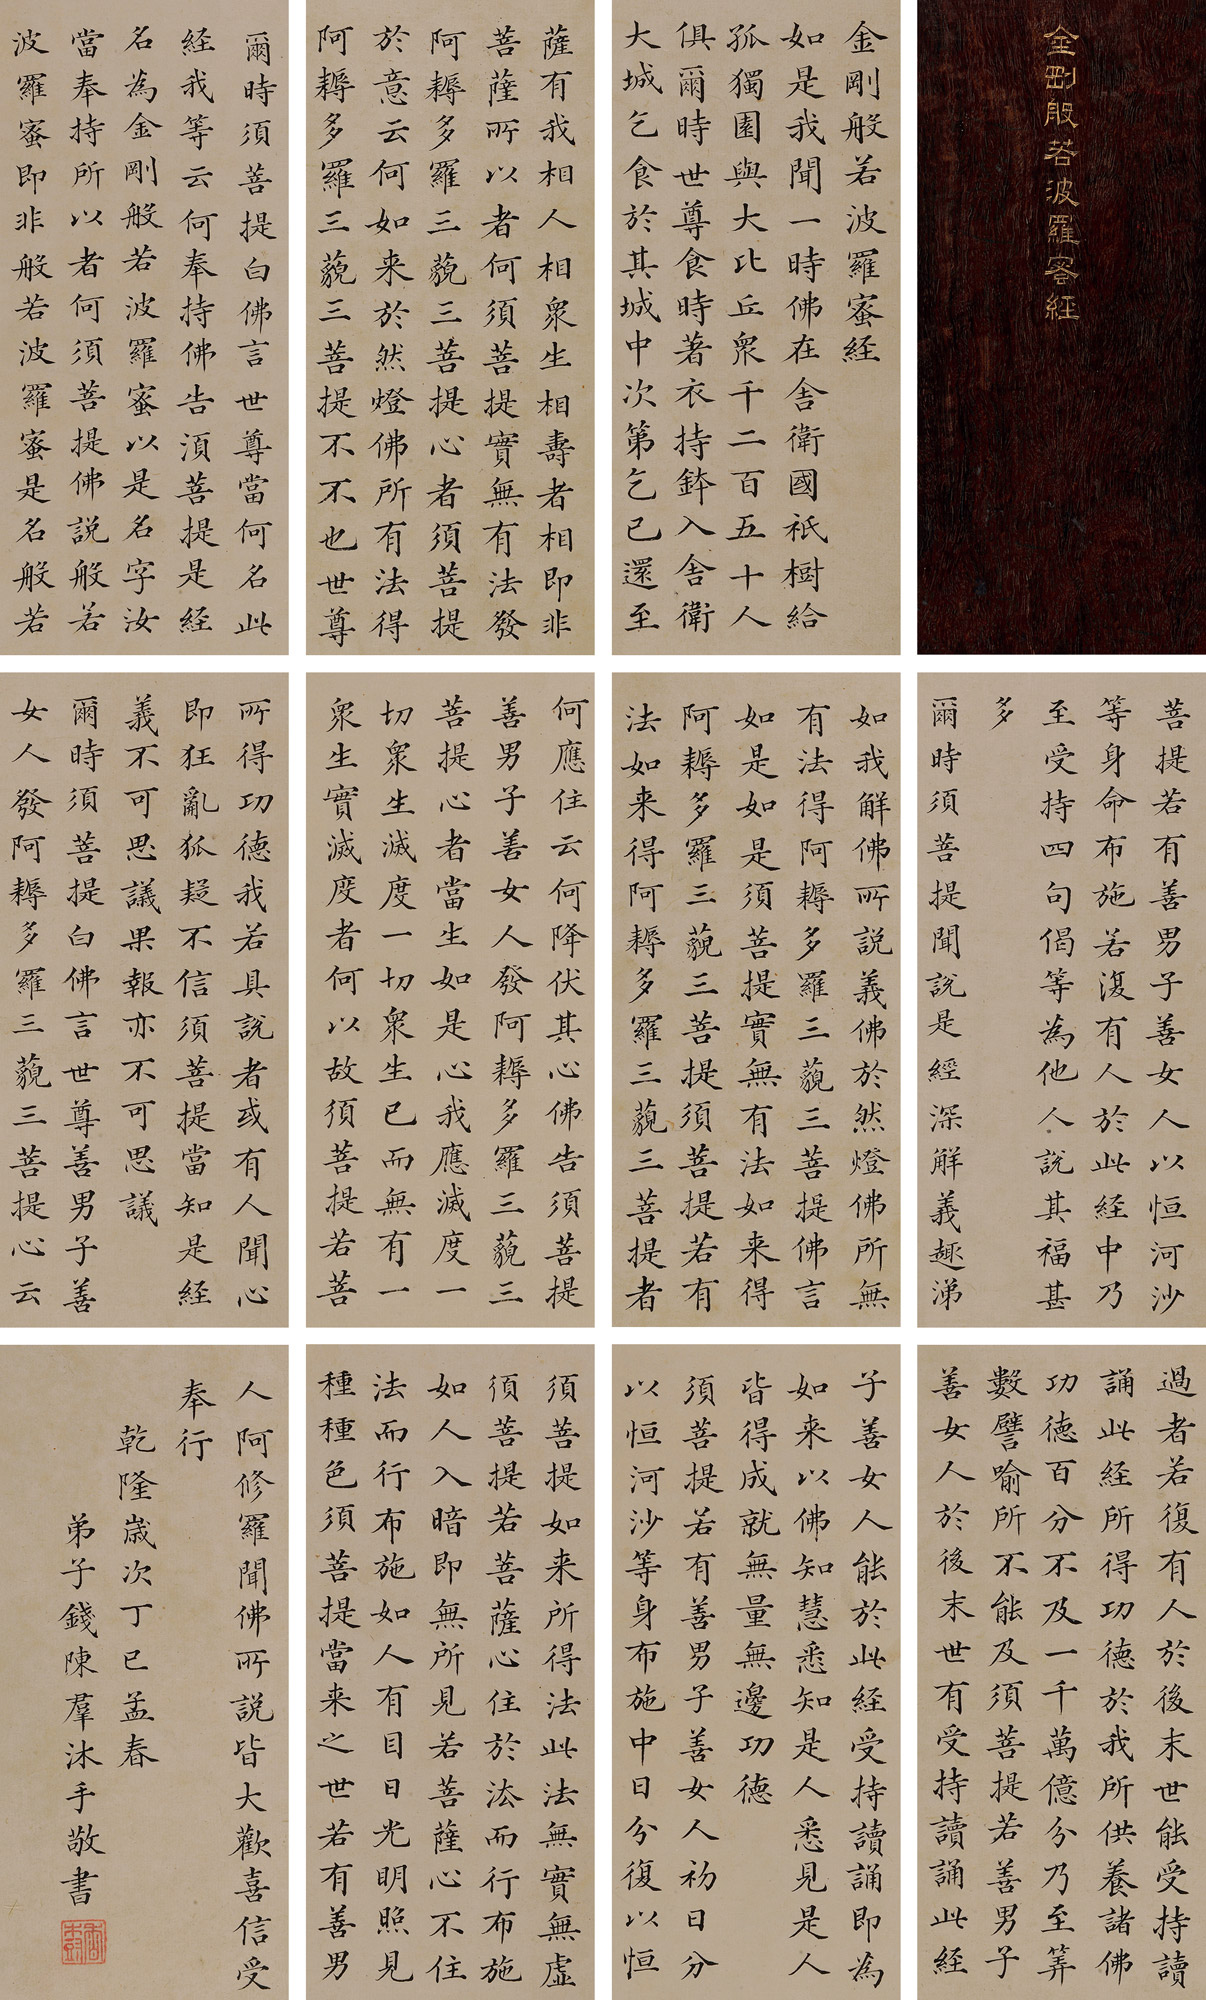 金剛般若波羅密經
金剛般若波羅蜜経
如是我聞一時佛在舎衛國祇樹給
孤獨園與大比丘衆千二百五十人
俱爾時世尊食時著衣持鉢入舎衛
大城乞食於其城中次第乞已還至
薩有我相人相衆生相壽者相即非
菩薩所以者何須菩提實無有法發
阿耨多羅三藐三菩提心者須菩提
於意云何如来於然燈佛所有法得
阿耨多羅三藐三菩提不不也世尊
爾時須菩提白佛言世尊當何名此
経我等云何奉持佛告須菩提是経
名為金剛般若波羅蜜以是名字汝
當奉持所以者何須菩提佛説般若
波羅蜜即非般若波羅蜜是名般若
菩提若有善男子善女人以恒河沙
等身命布施若復有人於此経中乃
至受持四句偈等為他人説其福甚
多
爾時須菩提聞説是經深解義趣涕
如我解佛所説義佛於然燈佛所無
有法得阿耨多羅三藐三菩提佛言
如是如是須菩提實無有法如来得
阿耨多羅三藐三菩提須菩提若有
法如来得阿耨多羅三藐三菩提者
何應住云何降伏其心佛告須菩提
善男子善女人發阿耨多羅三藐三
菩提心者當生如是心我應滅度一
切衆生滅度一切衆生已而無有一
衆生實滅度者何以故須菩提若菩
所得功德我若具說者或有人聞心
即狂亂狐疑不信須菩提當知是経
義不可思議果報亦不可思議
爾時須菩提白佛言世尊善男子善
女人發阿耨多羅三藐三菩提心云
過者若復有人於後末世能受持讀
誦此経所得功德於我所供養諸佛
功德百分不及一千萬億分乃至筭
數譬喻所不能及須菩提若善男子
善女人於後末世有受持讀誦此経
子善女人能於此経受持讀誦即為
如来以佛知慧悉知是人悉見是人
皆得成就無量無邊功德
須菩提若有善男子善女人初日分
以恒河沙等身布施中日分復以恒
須菩提如来所得法此法無實無虛
須菩提若菩薩心住於法而行布施
如人入暗即無所見若菩薩心不住
法而行布施如人有目日光明照見
種種色須菩提當来之世若有善男
人阿修羅聞佛所說皆大歡喜信受
奉行
乾隆歲次丁巳孟春
弟子錢陳羣沐手敬書